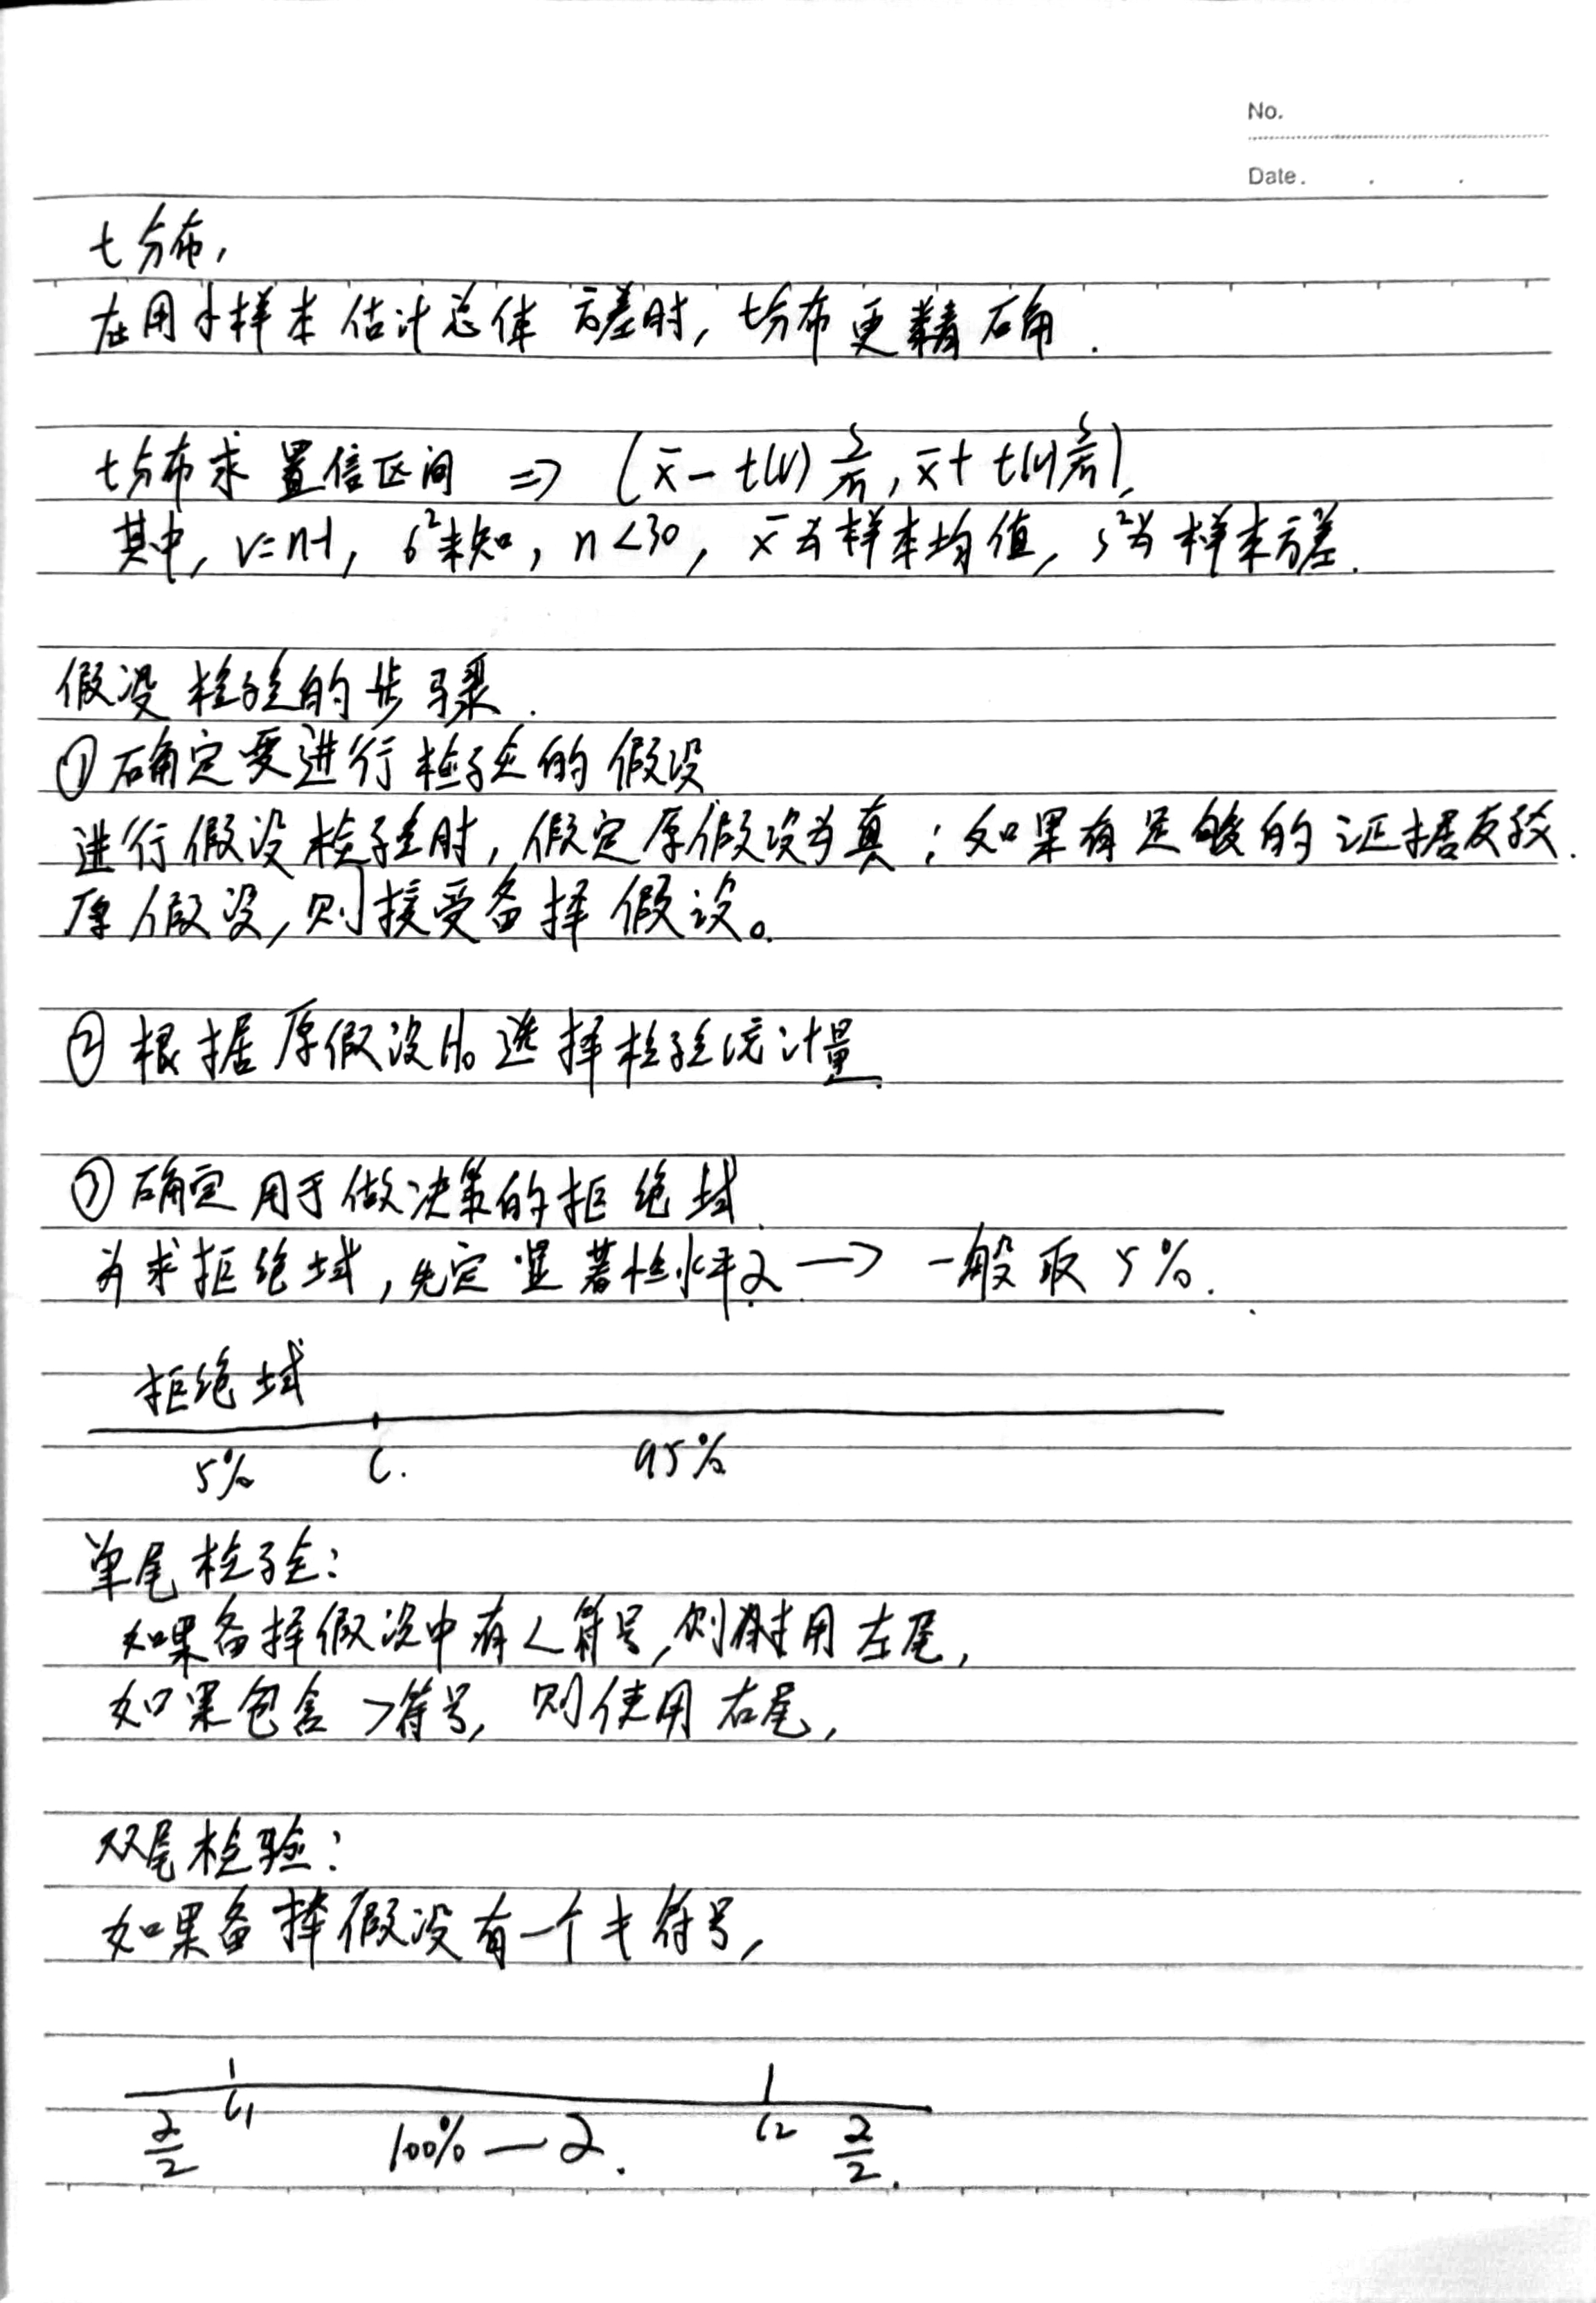 No.
Date. . .
t分布,
在用小样本估计总体方差时, t分布更精确.
t分布求置信区间 => (x̄ - t(v) s/√n, x̄ + t(v) s/√n),
其中, v=n-1, σ²未知, n<30, x̄为样本均值, s²为样本方差.
假设检验的步骤.
①确定要进行检验的假设
进行假设检验时, 假定原假设为真; 如果有足够的证据反驳.
原假设, 则接受备择假设。
②根据原假设H₀选择检验统计量.
③确定用于做决策的拒绝域.
为求拒绝域, 先定显著性水平α —> 一般取5%.
拒绝域
5% C. 95%
单尾检验:
如果备择假设中有<符号, 则使用左尾,
如果包含>符号, 则使用右尾,
双尾检验:
如果备择假设有一个≠符号,
C₁ C₂
α/2 100% — α. α/2.